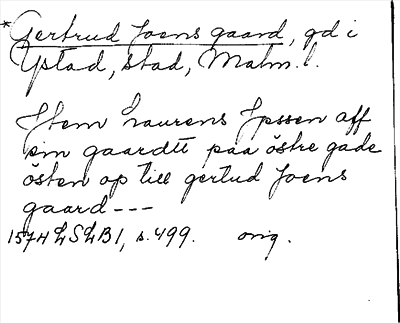 *Gertrud Joens gaard, gd i
Ystad, stad, Malm. l.
Item Laurens Ipssen aff
sin gaardtt paa östre gade
östen op till gertud Joens
gaard ---
1574 LSLB 1, s. 499. orig.